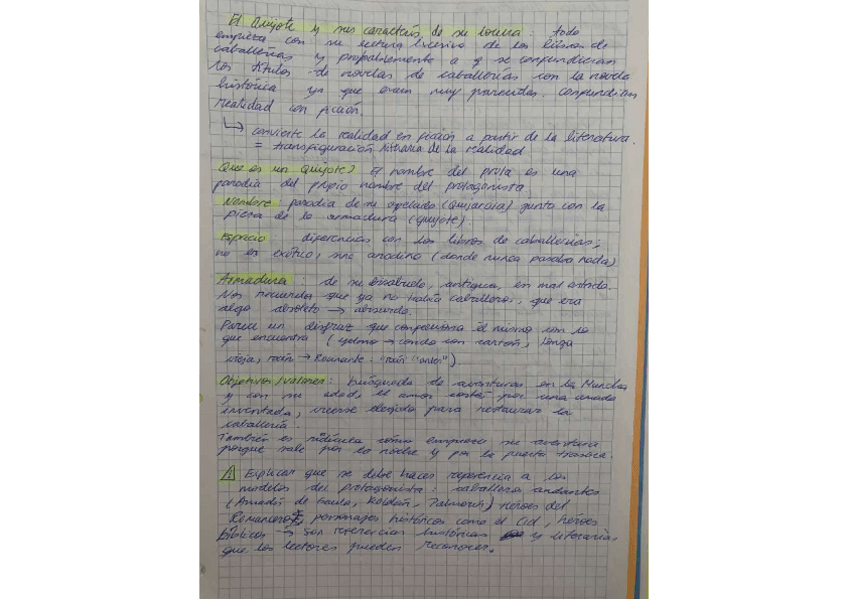 El Quijote y sus caracts de su locura : todo
empieza con su lectura excesiva de los libros de
caballerías y propablemente a q se confundieran
los títulos de novelas de caballerías con la novela
histórica ya que eran muy parecidos. confundían
realidad con ficción.
↳ convierte la realidad en ficción a partir de la literatura.
= transfiguración literaria de la realidad
Que es un Quijote? El nombre del prota es una
parodia del propio nombre del protagonista
Nombre : parodia de su apellido (Quijarcia) junto con la
pieza de la armadura (quijote).
Espacio diferencias con los libros de caballerías,
no es exótico, sino anodino (donde nunca pasaba nada)
Armadura : de su bisabuelo, antigua, en mal estado.
Nos recuerda que ya no había caballeros, que era
algo obsoleto → absurdo.
Parece un disfraz que confecciona él mismo con lo
que encuentra ( yelmo → con cartón, longa
vieja, rocín → Rocinante : "rocín" "antes" ).
Objetivos / valores : búsqueda de aventuras en La Mancha
y con su edad, el amor cortés por una amada
inventada, creerse elegido para restaurar la
caballería.
También es ridícula cómo empieza su aventura
porque sale por la noche y por la puerta trasera.
Explicar que se debe hacer referencia a los
modelos del protagonista : caballeros andantes
(Amadís de Gaula, Roldán, Palmerín) héroes del
Romancero, personajes históricos como el Cid, héroes
bíblicos → son referencias históricas y literarias
que los lectores pueden reconocer.